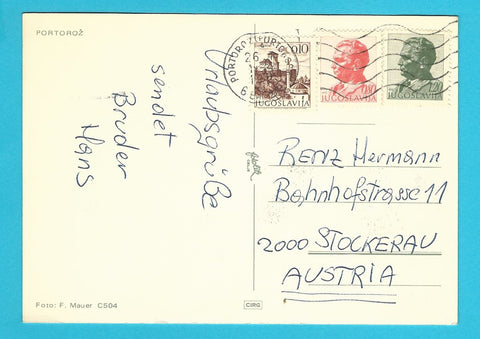 PORTOROŽ
Urlaubsgrüße
sendet
Bruder
Hans
26
0,10
JUGOSLAVIJA
JUGOSLAVIJA
1,20
JUGOSLAVIJA
Renz Hermann
Bahnhofstrasse 11
2000 STOCKERAU
AUSTRIA
Foto: F. Mauer C504
CIRG